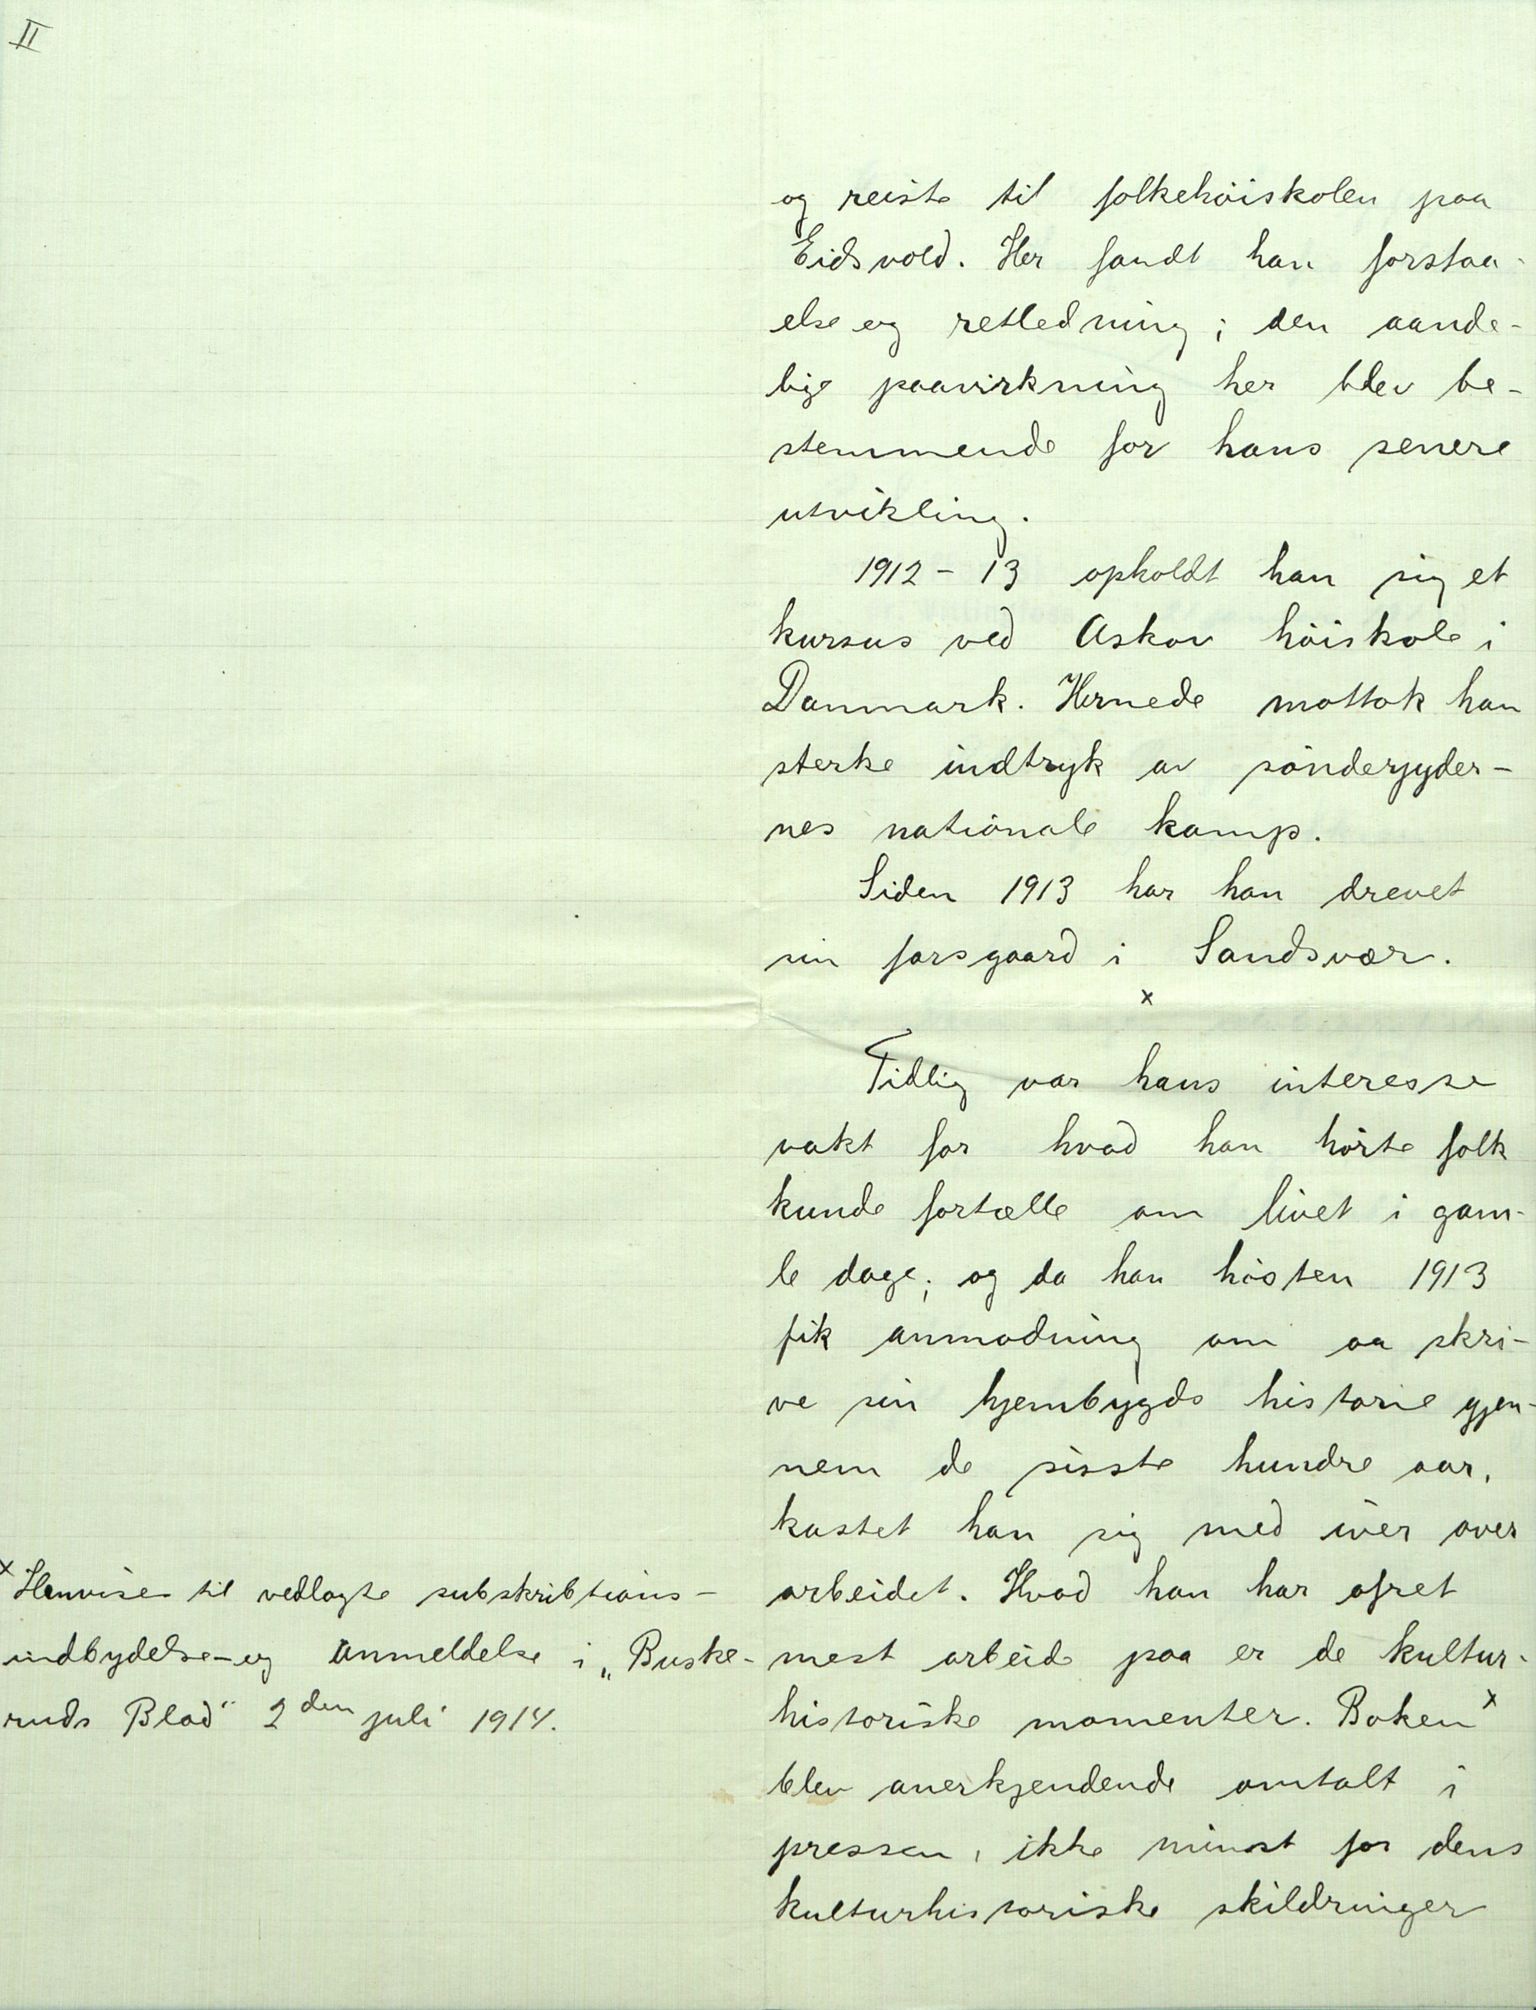 II
og reiste til folkehöiskolen paa
Eidsvold. Her fandt han forstaa-
else og retledning; den aande-
lige paavirkning her blev be-
stemmende for hans senere
utvikling.
1912 - 13 opholdt han sig et
kursus ved Askov höiskole i
Danmark. Hernede mottok han
sterke indtryk av sönderjyder-
nes nationale kamp.
Siden 1913 har han drevet
sin farsgaard i Sandsvær.
x
Tidlig var hans interesse
vakt for hvad han hörte folk
kunde fortælle om livet i gam-
le dage; og da han hösten 1913
fik anmodning om aa skri-
ve sin hjembygds historie gjen-
nem de sisste hundre aar,
kastet han sig med iver over
arbeidet. Hvad han har ofret
mest arbeide paa er de kultur-
historiske momenter. Boken x
blev anerkjendende omtalt i
pressen, ikke minst for dens
kulturhistoriske skildringer
x Henviser til vedlagte subskribtions-
indbydelse og anmeldelse i „Buske-
ruds Blad" 2den juli 1914.